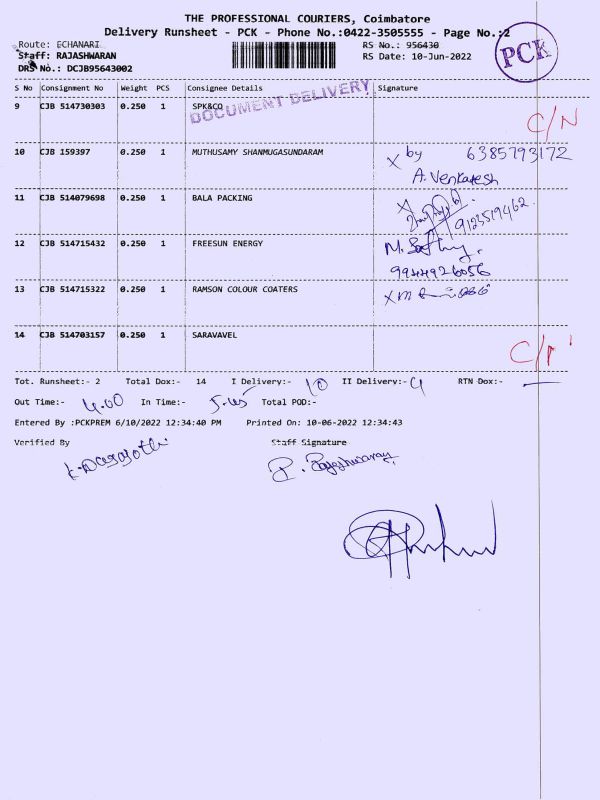 THE PROFESSIONAL COURIERS, Coimbatore
Delivery Runsheet - PCK - Phone No.:0422-3505555 - Page No.:2
PCK
Route: ECHANARI RS No.: 956430
Staff: RAJASHWARAN RS Date: 10-Jun-2022
DRS No.: DCJB95643002
S No Consignment No Weight PCS Consignee Details Signature
DOCUMENT DELIVERY
9 CJB 514730303 0.250 1 SPK&CO C/N
10 CJB 159397 0.250 1 MUTHUSAMY SHANMUGASUNDARAM X by 6385793172
A. Venkatesh
11 CJB 514079698 0.250 1 BALA PACKING X
9123519462.
12 CJB 514715432 0.250 1 FREESUN ENERGY
9944926056
13 CJB 514715322 0.250 1 RAMSON COLOUR COATERS X
14 CJB 514703157 0.250 1 SARAVAVEL
Tot. Runsheet:- 2 Total Dox:- 14 I Delivery:- 10 II Delivery:- 4 RTN Dox:-
Out Time:- 4.00 In Time:- 5.45 Total POD:-
Entered By :PCKPREM 6/10/2022 12:34:40 PM Printed On: 10-06-2022 12:34:43
Verified By Staff Signature